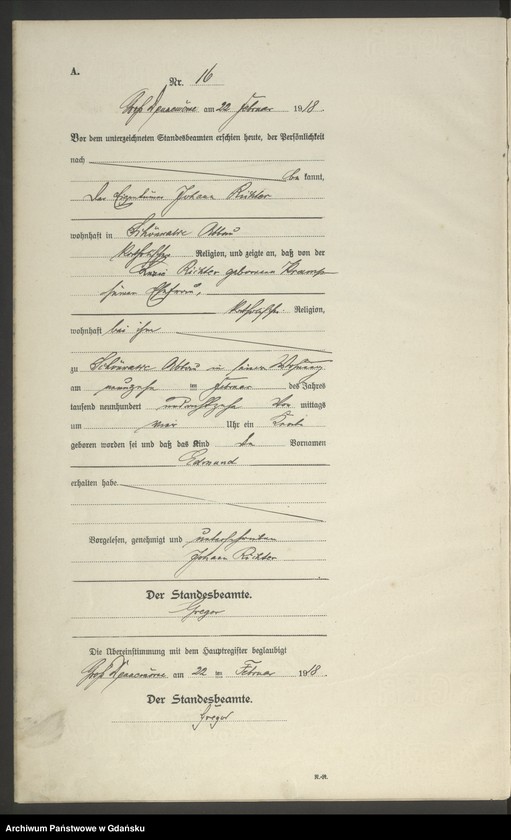 A.
Nr. 16
am 22 Februar 1918.
Vor dem unterzeichneten Standesbeamten erschien heute, der Persönlichkeit
nach
be kannt,
der Eigentümer Johann Richter
wohnhaft in Abbau
katholischer Religion, und zeigte an, daß von der
Richter geborenen
seiner Ehefrau,
katholischer Religion,
wohnhaft bei ihm
zu Abbau in seiner Wohnung
am neunzehn im Februar des Jahres
tausend neunhundert undachtzehn Vor mittags
um vier Uhr ein Knabe
geboren worden sei und daß das Kind den Vornamen
Edmund
erhalten habe.
Vorgelesen, genehmigt und unterschrieben
Johann Richter
Der Standesbeamte.
Gregor
Die Übereinstimmung mit dem Hauptregister beglaubigt
am 22 Februar 1918.
Der Standesbeamte.
Gregor
Archiwum Państwowe w Gdańsku